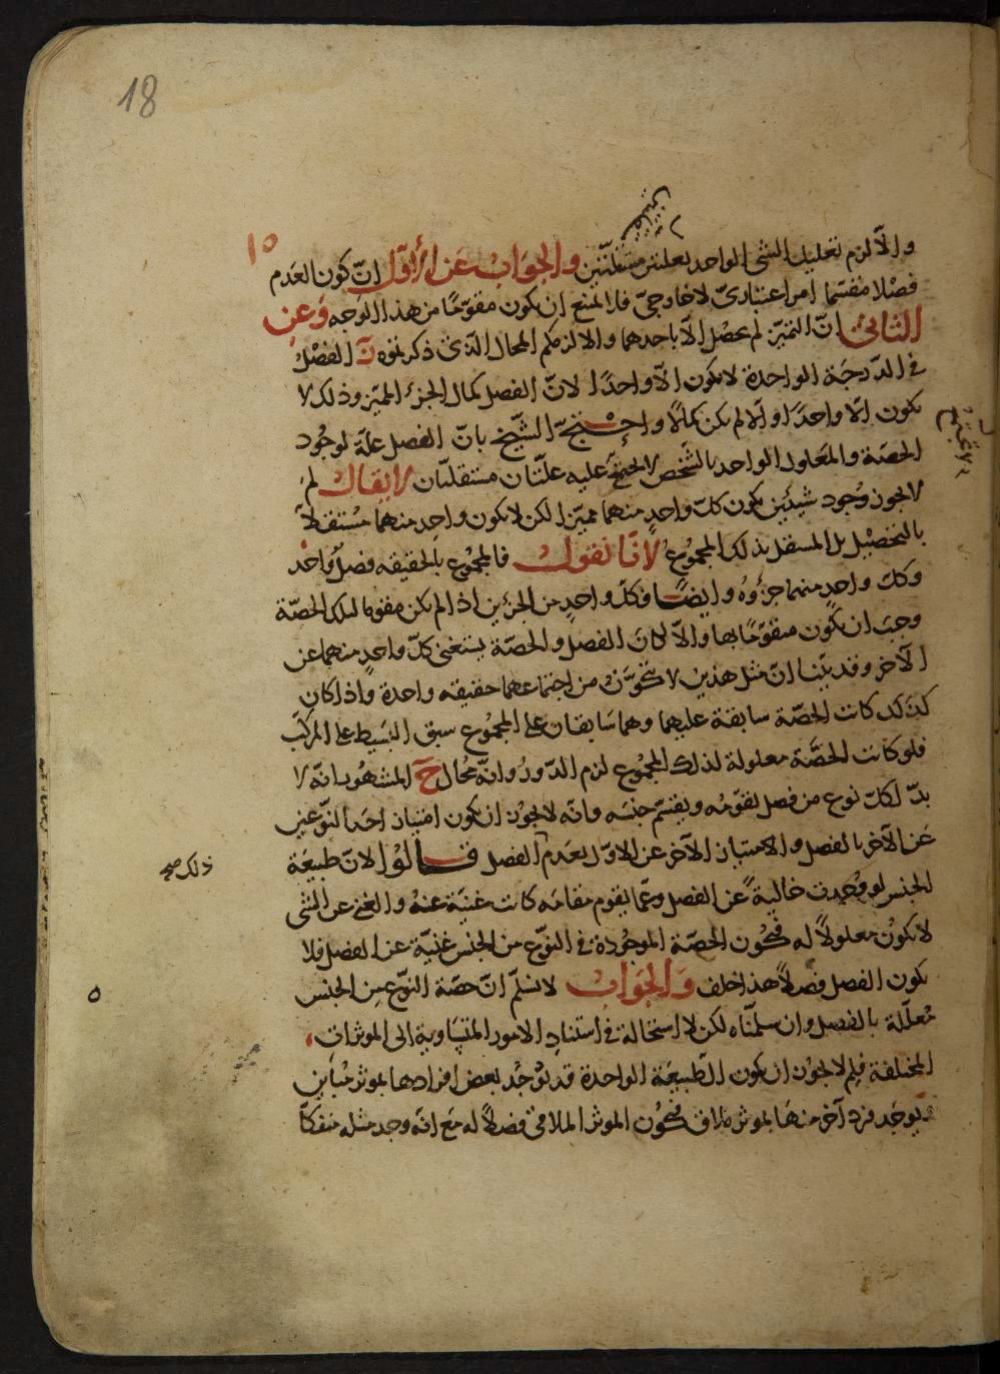 18
والّا لزم تعليل الشى الواحد بعلتين مستقلّتين والجواب عن الأوّل انّ كون العدم
فصلا مقسّما امر اعتبارىّ لا خارجىّ فلا امتنع ان يكون مقوّمًا من هذا الوجه وعن
الثانى انّ التميّز لم يحصل الّا باحدهما والّا لزمكم المحال الّذى ذكرتموه الفصل
فى الدّرجة الواحدة لا يكون الّا واحدًا لانّ الفصل كمال الجزء المميّز وذلك لا
يكون الّا واحدًا والّا لم يكن كمالًا واحتجّ الشّيخ بانّ الفصل علّة لوجود
الحصّة والمعلول الواحد بالشّخص لا يجتمع عليه علّتان مستقلّتان لا يقال لم
لا يجوز وجود شيئين يكون كلّ واحدٍ منهما مميّزا لكن لا يكون واحد منهما مستقلاّ
بالتحصيل بل المستقل بذلك المجموع لانّا نقول فالمجموع بالحقيقه فصل واحد
وكل واحدٍ منهما جزؤه وايضًا فكلّ واحدٍ من الجزئين اذا لم يكن مقوما لتلك الحصّة
وجب ان يكون متقوّمًا بها والّا لكان الفصل والحصّة يستغنى كلّ واحدٍ منهما عن
الآخر وقد بيّنا انّ مثل هذين لا تتكوّن من اجتماعهما حقيقه واحدة واذا كان
كذلك كانت الحصّة سابقة عليهما وهما سابقان على المجموع سبق البسيط على المركّب
فلو كانت الحصّة معلولة لذلك المجموع لزم الدّور وانّه محال ح المشهور انّه لا
بدّ لكلّ نوع من فصل يقوّمه ويقسّم جنسه وانّه لا يجوز ان يكون امتياز احد النّوعين
عن الآخر بالفصل والامتياز الآخر عن الاول بعدم الفصل قالوا لانّ طبيعة
ذلك صح
الجنس لو وُجدت خالية عن الفصل وعمّا يقوم مقامه كانت غنيّة عنه والغنى عن الشى
لا يكون معلولًا له فيكون الحصّة الموجودة فى النّوع من الجنس غنيّة عن الفصل فلا
يكون الفصل فصلًا هذا خلف والجواب لا نسلّم انّ حصّة النّوع من الجنس
معلّلة بالفصل وان سلّمناه لكن لا استحالة فى استناد الامور المتساوية الى الموثرات
المختلفة فلم لا يجوز ان يكون الطبيعة الواحدة قد توجد بعض افرادها بموثر مباين
ويوجد فرد آخر منها بموثر ملاق فيكون الموثر الملاقى فصلًا له مع انّه وجد مثله منفكّا